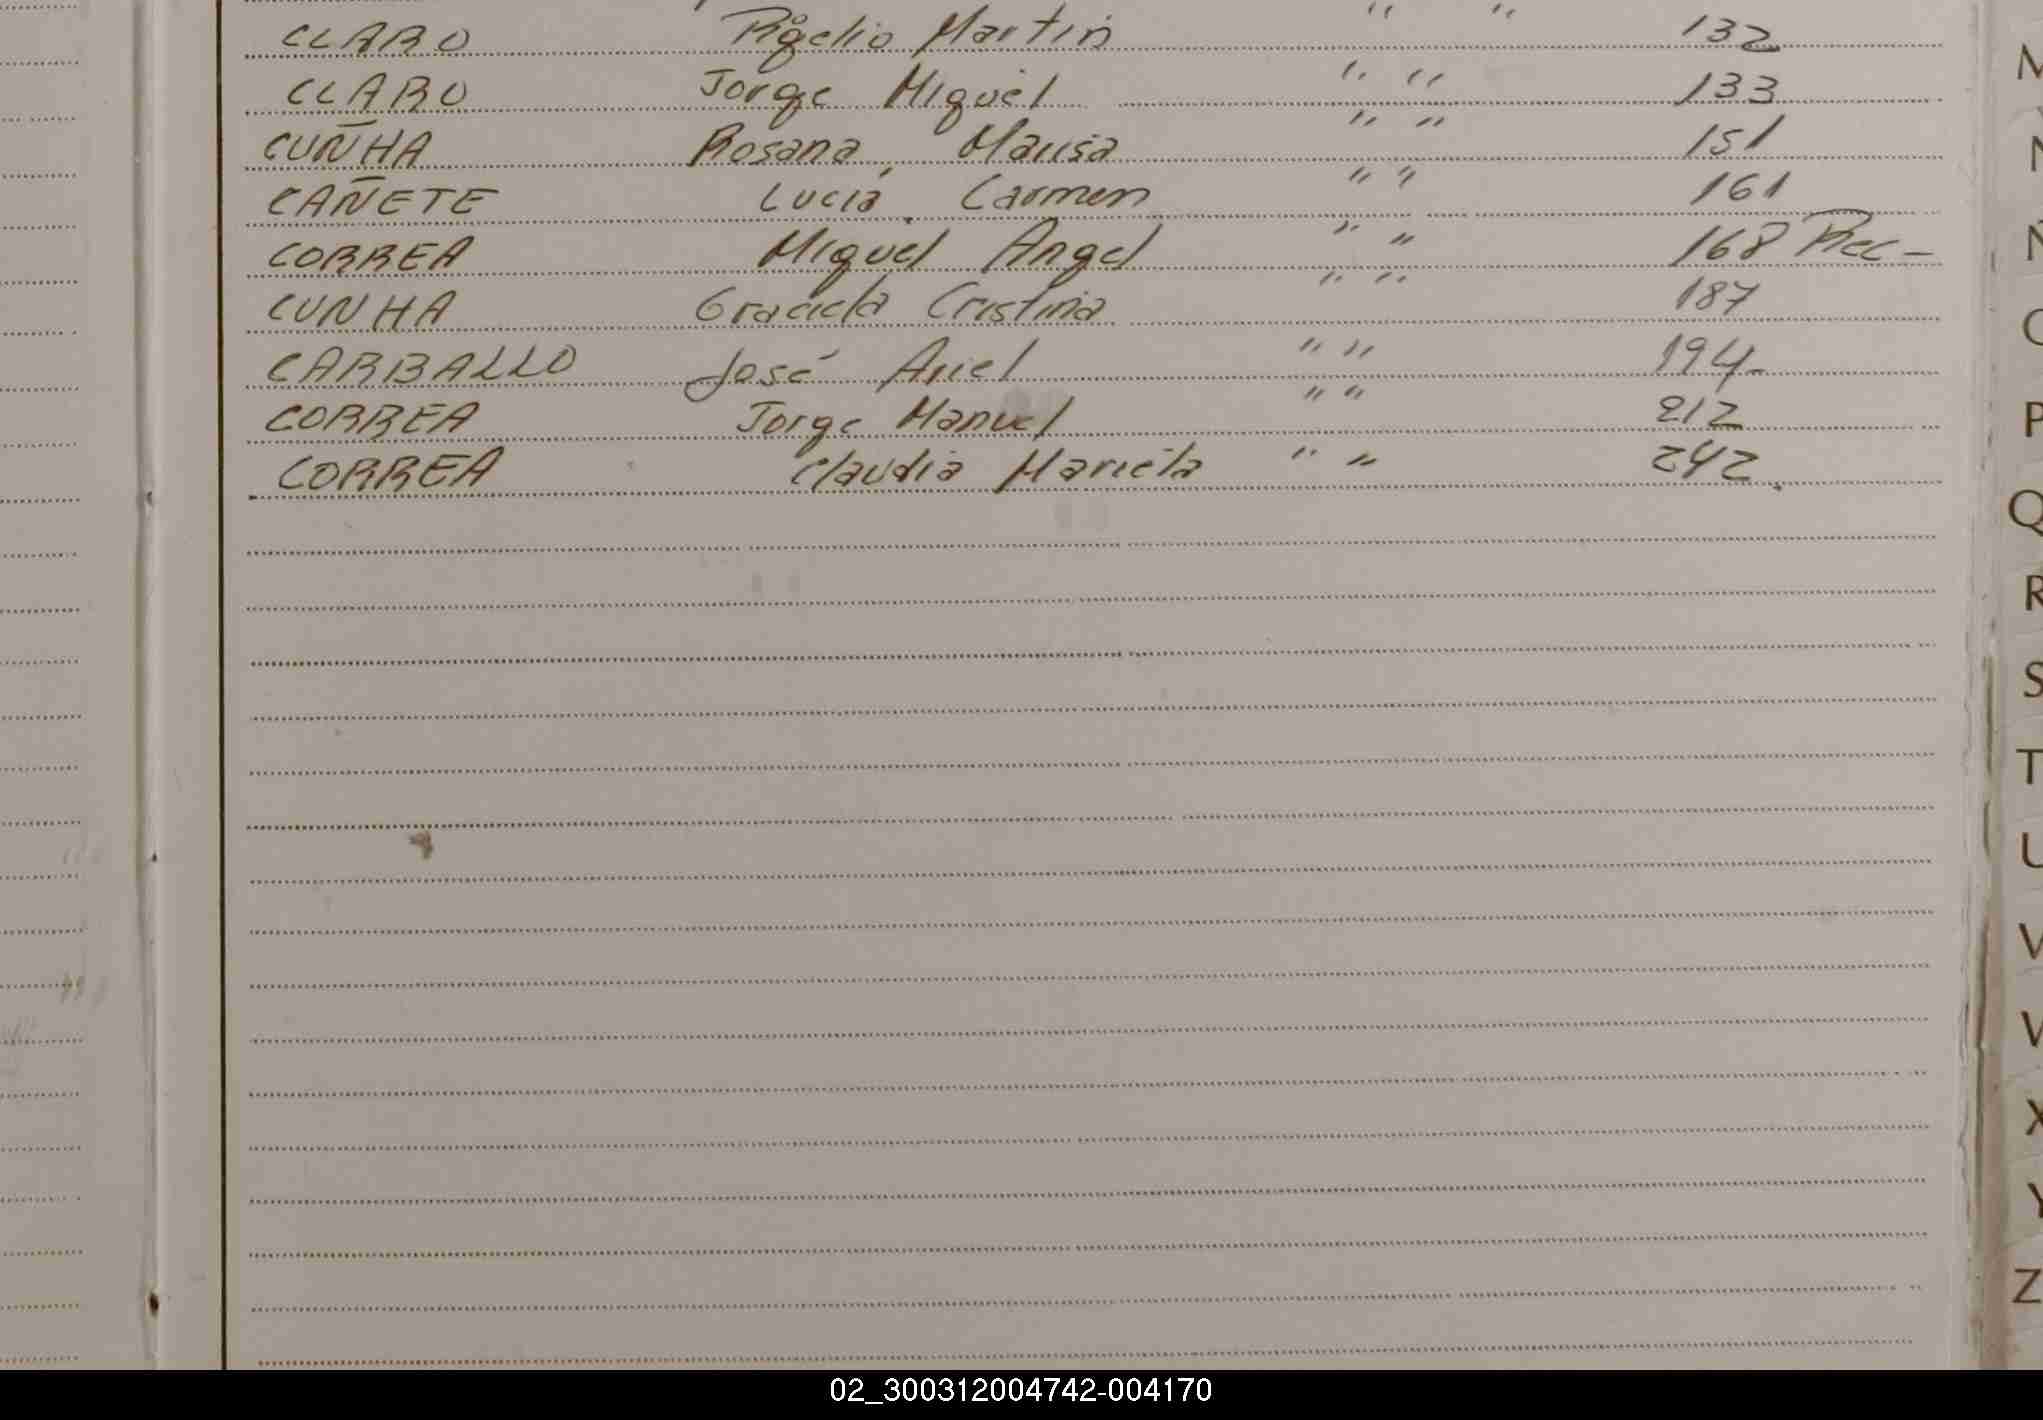 CLARO Rogelio Martin " " 132
CLARO Jorge Miguel " " 133
CUÑHA Rosana Marisa " " 151
CAÑETE Lucia Carmen " " 161
CORREA Miguel Angel " " 168 Rec -
CUNHA Graciela Cristina " " 187
CARBALLO José Ariel " " 194-
CORREA Jorge Manuel " " 212
CORREA Claudia Mariela " " 242.
M
N
Ñ
O
P
Q
R
S
T
U
V
X
Y
Z
02_300312004742-004170